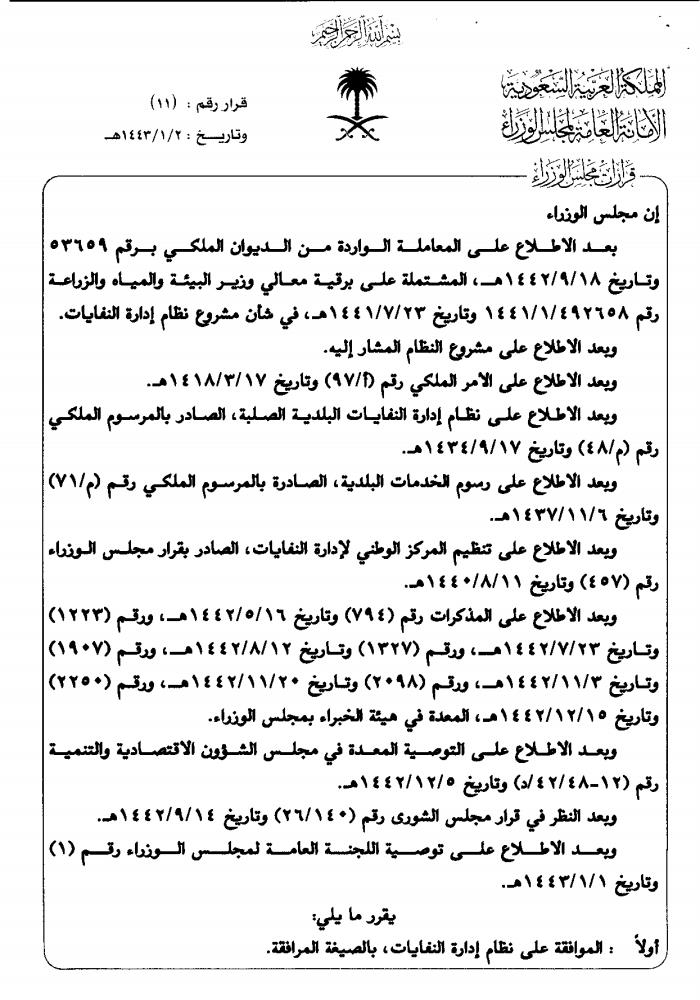 بسم الله الرحمن الرحيم
المملكة العربية السعودية
الأمانة العامة لمجلس الوزراء
قرار رقم : (١١)
وتاريخ : ١٤٤٣/١/٢هـ
قرارات مجلس الوزراء
إن مجلس الوزراء
بعد الاطلاع على المعاملة الواردة من الديوان الملكي برقم ٥٣٦٥٩
وتاريخ ١٤٤٢/٩/١٨هـ، المشتملة على برقية معالي وزير البيئة والمياه والزراعة
رقم ١٤٤١/١/٤٩٢٦٥٨ وتاريخ ١٤٤١/٧/٢٣هـ، في شأن مشروع نظام إدارة النفايات.
وبعد الاطلاع على مشروع النظام المشار إليه.
وبعد الاطلاع على الأمر الملكي رقم (أ/٩٧) وتاريخ ١٤١٨/٣/١٧هـ.
وبعد الاطلاع على نظام إدارة النفايات البلدية الصلبة، الصادر بالمرسوم الملكي
رقم (م/٤٨) وتاريخ ١٤٣٤/٩/١٧هـ.
وبعد الاطلاع على رسوم الخدمات البلدية، الصادرة بالمرسوم الملكي رقم (م/٧١)
وتاريخ ١٤٣٧/١١/٦هـ.
وبعد الاطلاع على تنظيم المركز الوطني لإدارة النفايات، الصادر بقرار مجلس الوزراء
رقم (٤٥٧) وتاريخ ١٤٤٠/٨/١١هـ.
وبعد الاطلاع على المذكرات رقم (٧٩٤) وتاريخ ١٤٤٢/٥/١٦هـ، ورقم (١٢٢٣)
وتاريخ ١٤٤٢/٧/٢٣هـ، ورقم (١٣٢٧) وتاريخ ١٤٤٢/٨/١٢هـ، ورقم (١٩٠٧)
وتاريخ ١٤٤٢/١١/٣هـ، ورقم (٢٠٩٨) وتاريخ ١٤٤٢/١١/٢٠هـ، ورقم (٢٢٥٠)
وتاريخ ١٤٤٢/١٢/١٥هـ، المعدة في هيئة الخبراء بمجلس الوزراء.
وبعد الاطلاع على التوصية المعدة في مجلس الشؤون الاقتصادية والتنمية
رقم (١٢-٤٢/٤٨/د) وتاريخ ١٤٤٢/١٢/٥هـ.
وبعد النظر في قرار مجلس الشورى رقم (٢٦/١٤٠) وتاريخ ١٤٤٢/٩/١٤هـ.
وبعد الاطلاع على توصية اللجنة العامة لمجلس الوزراء رقم (١)
وتاريخ ١٤٤٣/١/١هـ.
يقرر ما يلي:
أولاً : الموافقة على نظام إدارة النفايات، بالصيغة المرافقة.